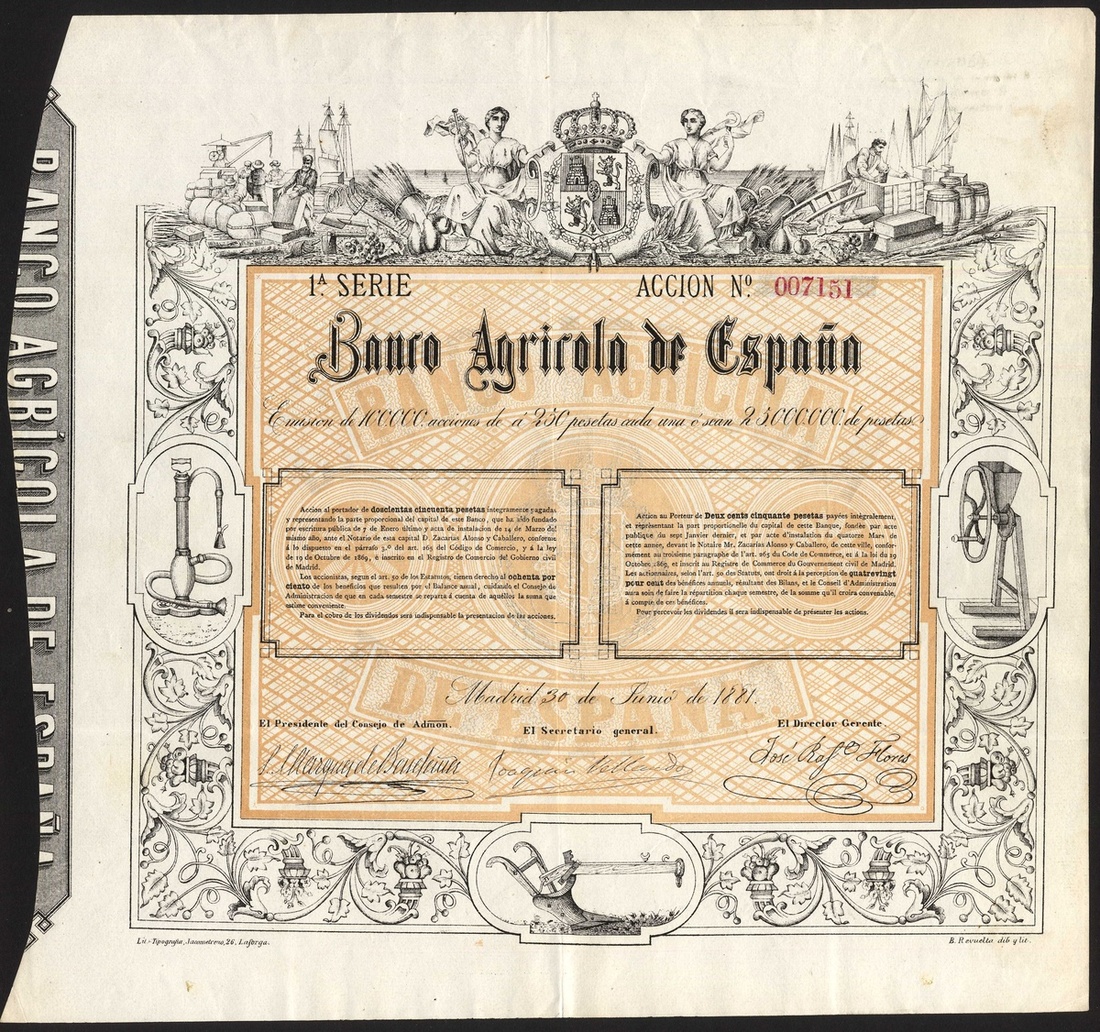 BANCO AGRÍCOLA DE ESPAÑA
1.ª SERIE ACCION Nº 007151
Banco Agricola de España
BANCO AGRÍCOLA
Emision de 100.000. acciones de á 250 pesetas cada una ó sean 25.000.000. de pesetas.
Accion al portador de doscientas cincuenta pesetas íntegramente pagadas
y representando la parte proporcional del capital de este Banco, que ha sido fundado
por escritura pública de 7 de Enero último y acta de instalacion de 14 de Marzo del
mismo año, ante el Notario de esta capital D. Zacarías Alonso y Caballero, conforme
á lo dispuesto en el párrafo 3.º del art. 265 del Código de Comercio, y á la ley
de 19 de Octubre de 1869, é inscrito en el Registro de Comercio del Gobierno civil
de Madrid.
Los accionistas, segun el art. 50 de los Estatutos, tienen derecho al ochenta por
ciento de los beneficios que resulten por el Balance anual, cuidando el Consejo de
Administracion de que en cada semestre se reparta á cuenta de aquéllos la suma que
estime conveniente.
Para el cobro de los dividendos será indispensable la presentacion de las acciones.
Action au Porteur de Deux cents cinquante pesetas payées intégralement,
et répresentant la part proportionelle du capital de cette Banque, fondée par acte
publique du sept Janvier dernier, et par acte d'installation du quatorze Mars de
cette année, devant le Notaire Mr. Zacarías Alonso y Caballero, de cette ville, confor-
mément au troisieme paragraphe de l'art. 265 du Code de Commerce, et á la loi du 19
Octobre 1869, et inscrit au Registre de Commerce du Gouvernement civil de Madrid.
Les actionnaires, selon l'art. 50 des Statuts, ont droit á la perception de quatrevingt
pour cent des bénéfices annuels, résultant des Bilans, et le Conseil d'Administration
aura soin de faire la répartition chaque semestre, de la somme qu'il croira convenable,
á compte de ces bénéfices.
Pour percevoir les dividendes il sera indispensable de présenter les actions.
Madrid 30 de Junio de 1881.
DE ESPAÑA.
El Presidente del Consejo de Admon. El Secretario general. El Director Gerente.
El Marques de Joaquin José Raf.º Flores
Lit.-Tipografia, Jacometrezo, 26, Laforga. B. Revuelta dib y lit.